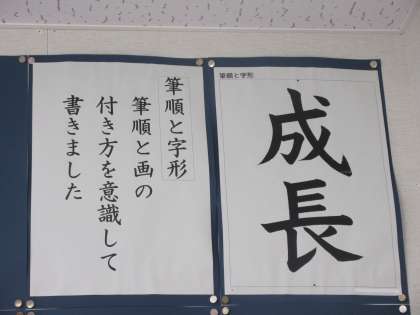 筆順と字形
成長
筆順と字形
筆順と画の
付き方を意識して
書きました